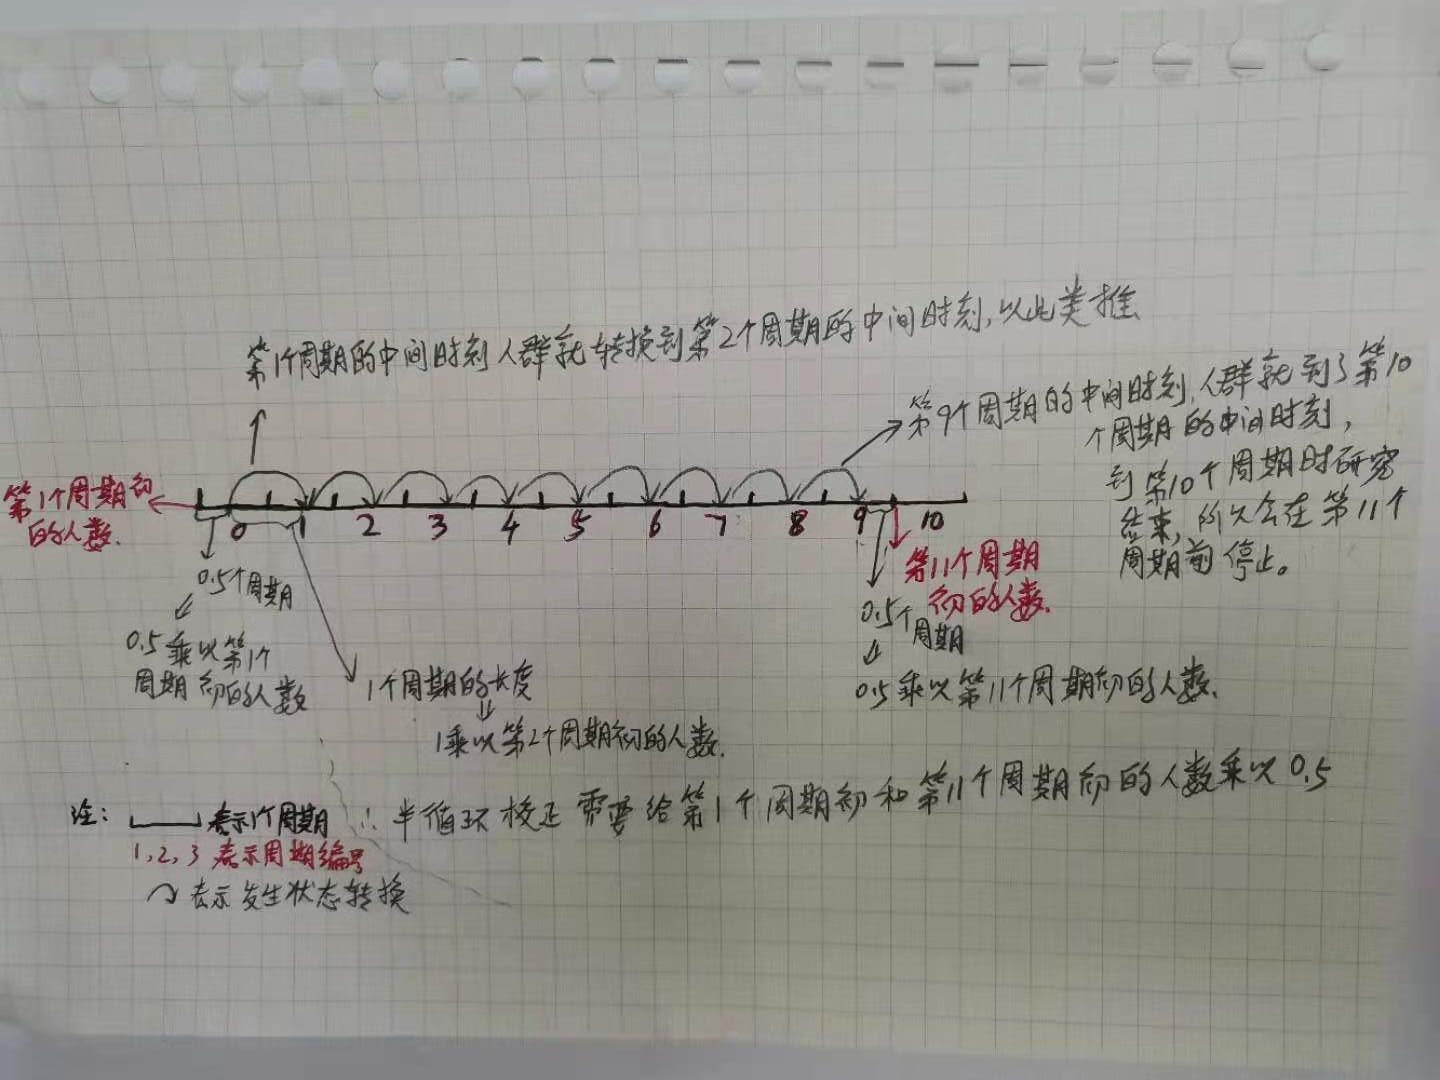 第1个周期的中间时刻人群就转换到第2个周期的中间时刻,以此类推
第9个周期的中间时刻,人群就到了第10
个周期的中间时刻,
到第10个周期时研究
结束,所以会在第11个
周期前停止。
第1个周期初
的人数.
0 1 2 3 4 5 6 7 8 9 10
0.5个周期
0.5乘以第1个
周期初的人数
1个周期的长度
1乘以第2个周期初的人数.
第11个周期
初的人数.
0.5个
周期
0.5乘以第11个周期初的人数.
注: 表示1个周期
∴半循环校正需要给第1个周期初和第11个周期初的人数乘以0.5
1,2,3表示周期编号
表示发生状态转换